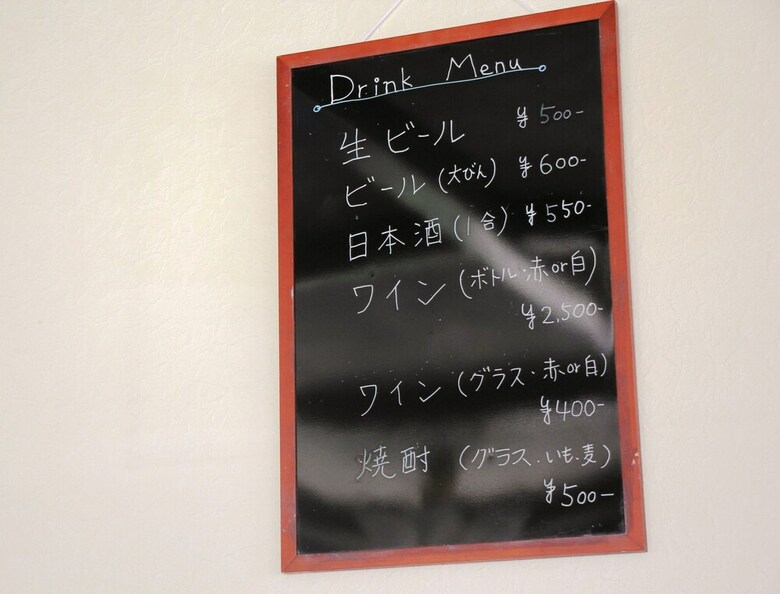 Drink Menu
生 ビール ¥500-
ビール(大びん) ¥600-
日本酒(1合) ¥550-
ワイン(ボトル・赤or白)
¥2,500-
ワイン(グラス・赤or白)
¥400-
焼酎 (グラス・いも、麦)
¥500-